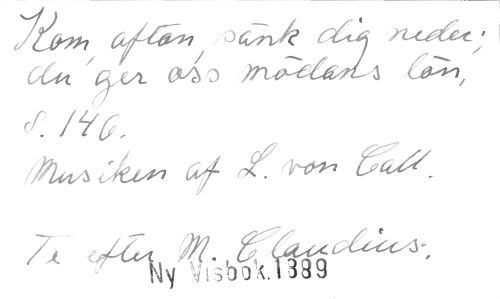 Kom, afton, sänk dig neder;
du ger oss mödans lön,
s. 146.
Musiken af L. von Call.
Te efter M. Claudius.
Ny Visbok.1889